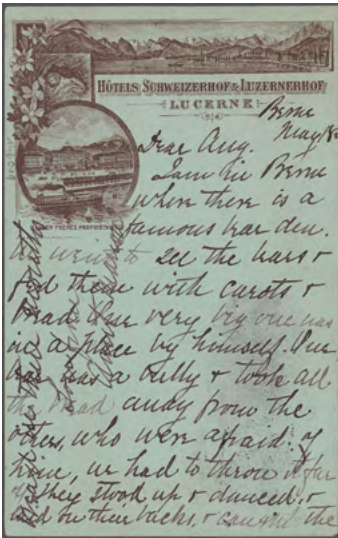 HÔTELS SCHWEIZERHOF & LUZERNERHOF
LUCERNE
Berne
May 18
Dear Aug.
I am in Berne
where there is a
famous bear den.
We went to see the bears &
fed them with carots &
bread. One very big one was
in a place by himself. One
bear was a bully & took all
the bread away from the
others, who were afraid of
him, we had to throw it far
off they stood up & danced, &
laid on their backs, & caught the